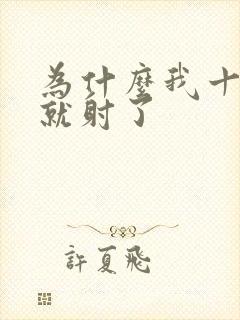 為什麼我十
就射了
許夏飛